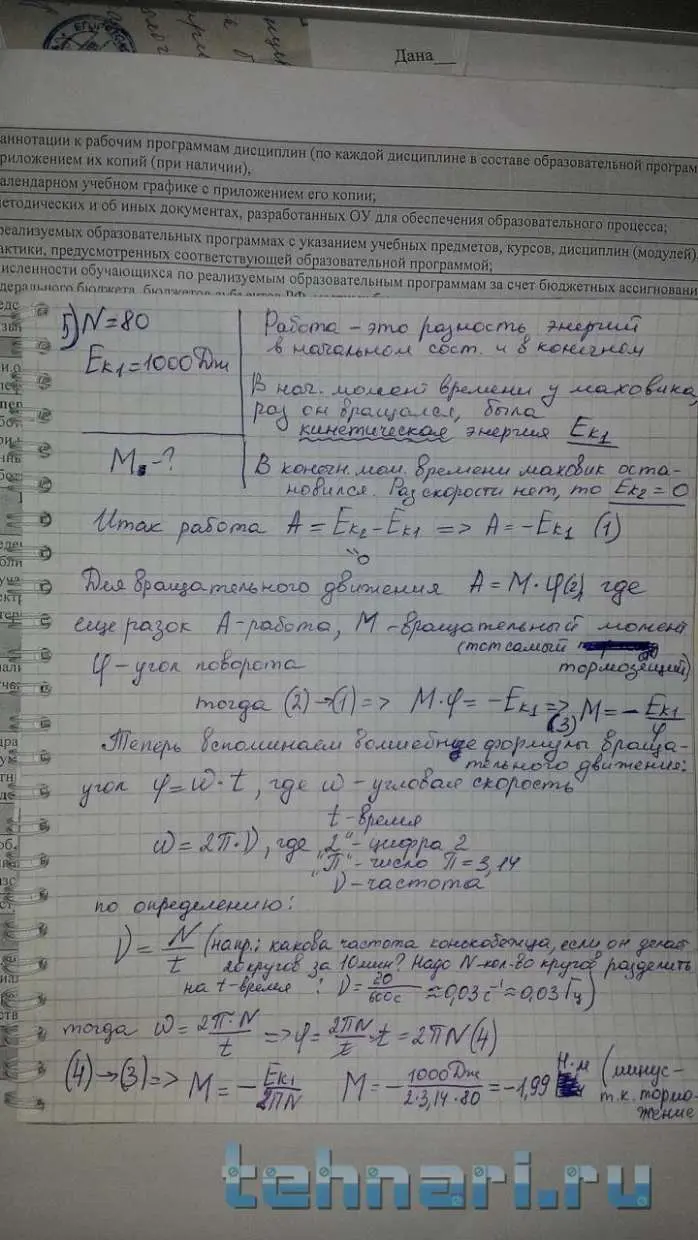 Дана__
аннотации к рабочим программам дисциплин (по каждой дисциплине в составе образовательной програм
риложением их копий (при наличии),
алендарном учебном графике с приложением его копии;
етодических и об иных документах, разработанных ОУ для обеспечения образовательного процесса;
реализуемых образовательных программах с указанием учебных предметов, курсов, дисциплин (модулей)
актики, предусмотренных соответствующей образовательной программой;
численности обучающихся по реализуемым образовательным программам за счет бюджетных ассигновани
5) N=80
Eк1=1000Дж
M-?
Работа - это разность энергий
в начальном сост. и в конечном
В нач. момент времени у маховика,
раз он вращался, была
кинетическая энергия Eк1
В конечн. мом. времени маховик оста-
новился. Раз скорости нет, то Eк2=0
Итак работа A=Eк2-Eк1 => A=-Eк1 (1)
"0
Для вращательного движения A=M·φ(2), где
еще разок A-работа, M-вращательный момент
(тот самый тормозящий)
φ-угол поворота
тогда (2)→(1)=> M·φ=-Eк1=> (3) M=-Eк1/φ
Теперь вспоминаем волшебные формулы враща-
тельного движения:
угол φ=ω·t, где ω-угловая скорость
t-время
ω=2π·ν, где "2"-цифра 2
"П"-число П=3,14
ν-частота
по определению:
ν=N/t (напр.: какова частота конькобежца, если он делает
20 кругов за 10 мин? Надо N-кол-во кругов разделить
на t-время : ν=20/600с≈0,03с⁻¹≈0,03Гц)
тогда ω=2π·N/t => φ=2πN/t·t=2πN(4)
(4)→(3)=> M=-Eк1/2πN M=-1000Дж/2·3,14·80=-1,99 Н·м (минус-
т.к. тормо-
жение
tehnari.ru